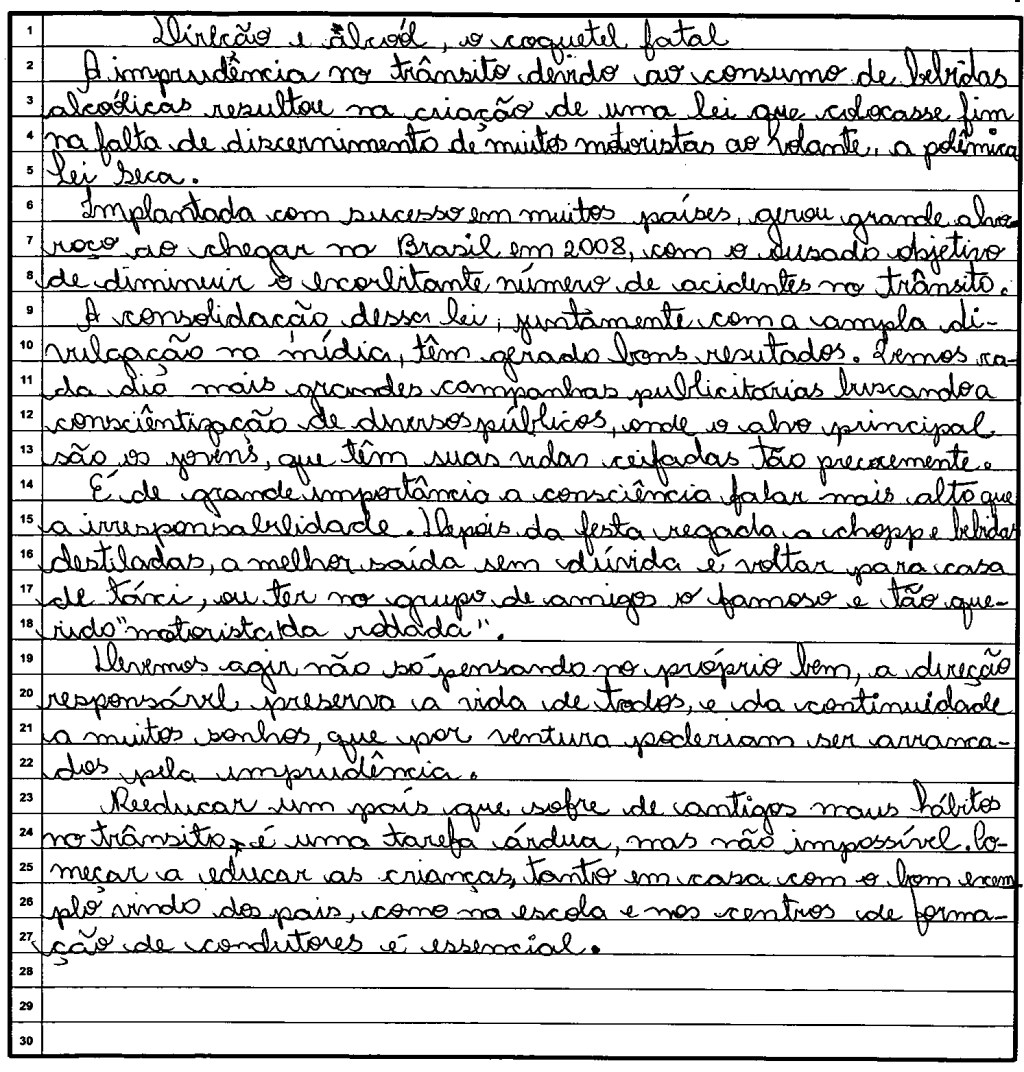 1 Direção e álcool, o coquetel fatal
2 A imprudência no trânsito devido ao consumo de bebidas
3 alcoólicas resultou na criação de uma lei que colocasse fim
4 na falta de discernimento de muitos motoristas ao volante, a polêmica
5 Lei Seca.
6 Implantada com sucesso em muitos países, gerou grande alvo-
7 roço ao chegar no Brasil em 2008, com o ousado objetivo
8 de diminuir o exorbitante número de acidentes no trânsito.
9 A consolidação dessa lei, juntamente com a ampla di-
10 vulgação na mídia, têm gerado bons resutados. Temos ca-
11 da dia mais grandes campanhas publicitárias buscando a
12 consciêntização de diversos públicos, onde o alvo principal
13 são os jovens, que têm suas vidas ceifadas tão precocemente.
14 É de grande importância a consciência falar mais alto que
15 a irresponsabilidade. Depois da festa regada a chopp e bebidas
16 destiladas, a melhor saída sem dúvida é voltar para casa
17 de táxi, ou ter no grupo de amigos o famoso e tão que-
18 rido "motorista da rodada".
19 Devemos agir não só pensando no próprio bem, a direção
20 responsável preserva a vida de todos, e da continuidade
21 a muitos sonhos, que por ventura poderiam ser arranca-
22 dos pela imprudência.
23 Reeducar um país que sofre de antigos maus hábitos
24 no trânsito, é uma tarefa árdua, mas não impossível. Co-
25 meçar a educar as crianças, tanto em casa com o bom exem
26 plo vindo dos pais, como na escola e nos centros de forma-
27 ção de condutores é essencial.
28
29
30